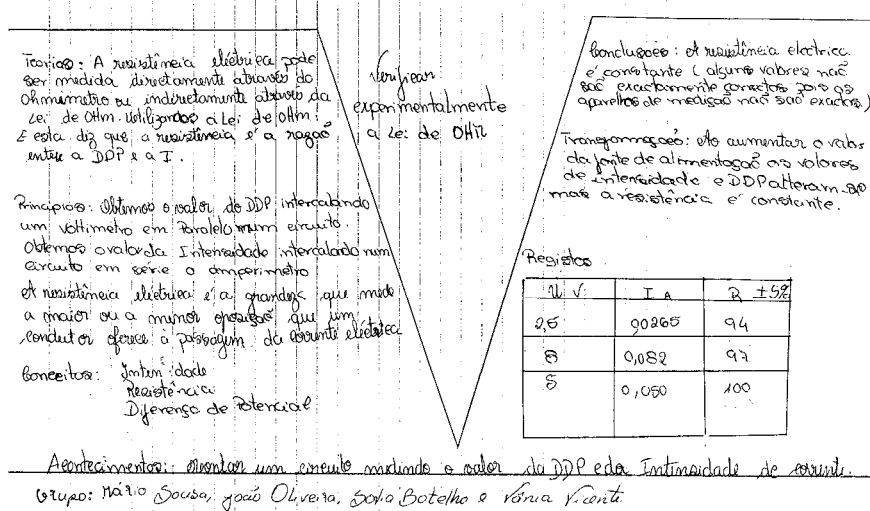 Teorias: A resistência eléctrica pode
ser medida directamente através do
Ohmimetro ou indirectamente através da
Lei de Ohm. Utilizando a Lei de Ohm:
E esta diz que a resistência é a razão
entre a DDP e a I.
Princípios: Obtemos o valor do DDP intercalando
um voltimetro em Paralelo num circuito.
Obtemos o valor da Intensidade intercalado num
circuito em série o amperimetro
A resistência eléctrica é a grandeza que mede
a maior ou a menor oposição que um
condutor oferece à passagem da corrente eléctrica
Conceitos: Intensidade
Resistência
Diferença de Potencial
Verificar
experimentalmente
a Lei de OHM
Conclusões: A resistência electrica
é constante (alguns valores não
são exactamente correctos pois os
aparelhos de medição não são exactos.)
Transformações: Ao aumentar o valor
da fonte de alimentação os valores
de intensidade e DDP alteram-se
mas a resistência é constante.
Registos
U V I A R ±5%
2,5 0,0265 94
8 0,082 97
5 0,050 100
Acontecimentos: Montar um circuito medindo o valor da DDP e da Intensidade de corrente.
Grupo: Mário Sousa, João Oliveira, Sofia Botelho e Vânia Vicente